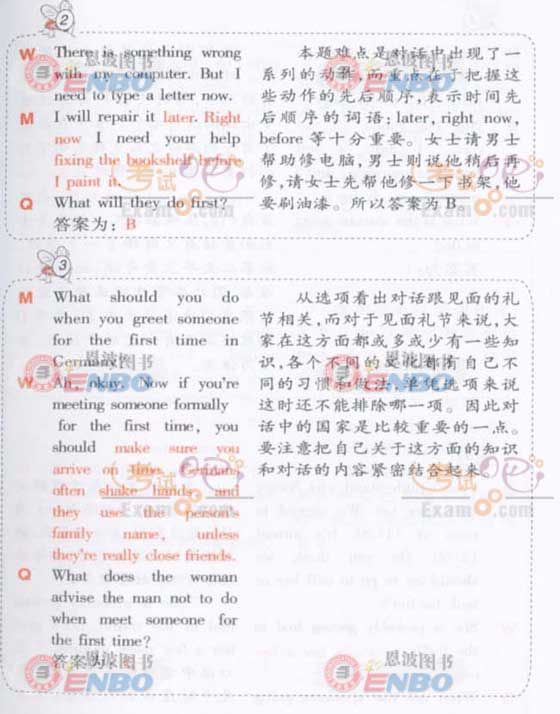 2
W There is something wrong
with my computer. But I
need to type a letter now.
M I will repair it later. Right
now I need your help
fixing the bookshelf before
I paint it.
Q What will they do first?
答案为: B
本题难点是对话中出现了一
系列的动作,而重点在于把握这
些动作的先后顺序,表示时间先
后顺序的词语: later, right now,
before 等十分重要。女士请男士
帮助修电脑,男士则说他稍后再
修,请女士先帮他修一下书架,他
要刷油漆。所以答案为 B
3
M What should you do
when you greet someone
for the first time in
Germany?
W Ah, okay. Now if you're
meeting someone formally
for the first time, you
should make sure you
arrive on time. Germans
often shake hands and
they use the person's
family name, unless
they're really close friends.
Q What does the woman
advise the man not to do
when meet someone for
the first time?
答案为:
从选项看出对话跟见面的礼
节相关,而对于见面礼节来说,大
家在这方面都或多或少有一些知
识,各个不同的文化都有自己不
同的习惯和做法,单从选项来说
这时还不能排除哪一项。因此对
话中的国家是比较重要的一点。
要注意把自己关于这方面的知识
和对话的内容紧密结合起来。
恩波图书
ENBO
恩波图书
ENBO
考试吧
Exam8.com
考试吧
Exam8.com
恩波图书
ENBO
恩波图书
ENBO
考试吧
Exam8.com
考试吧
Exam8.com
恩波图书
ENBO
恩波图书
ENBO